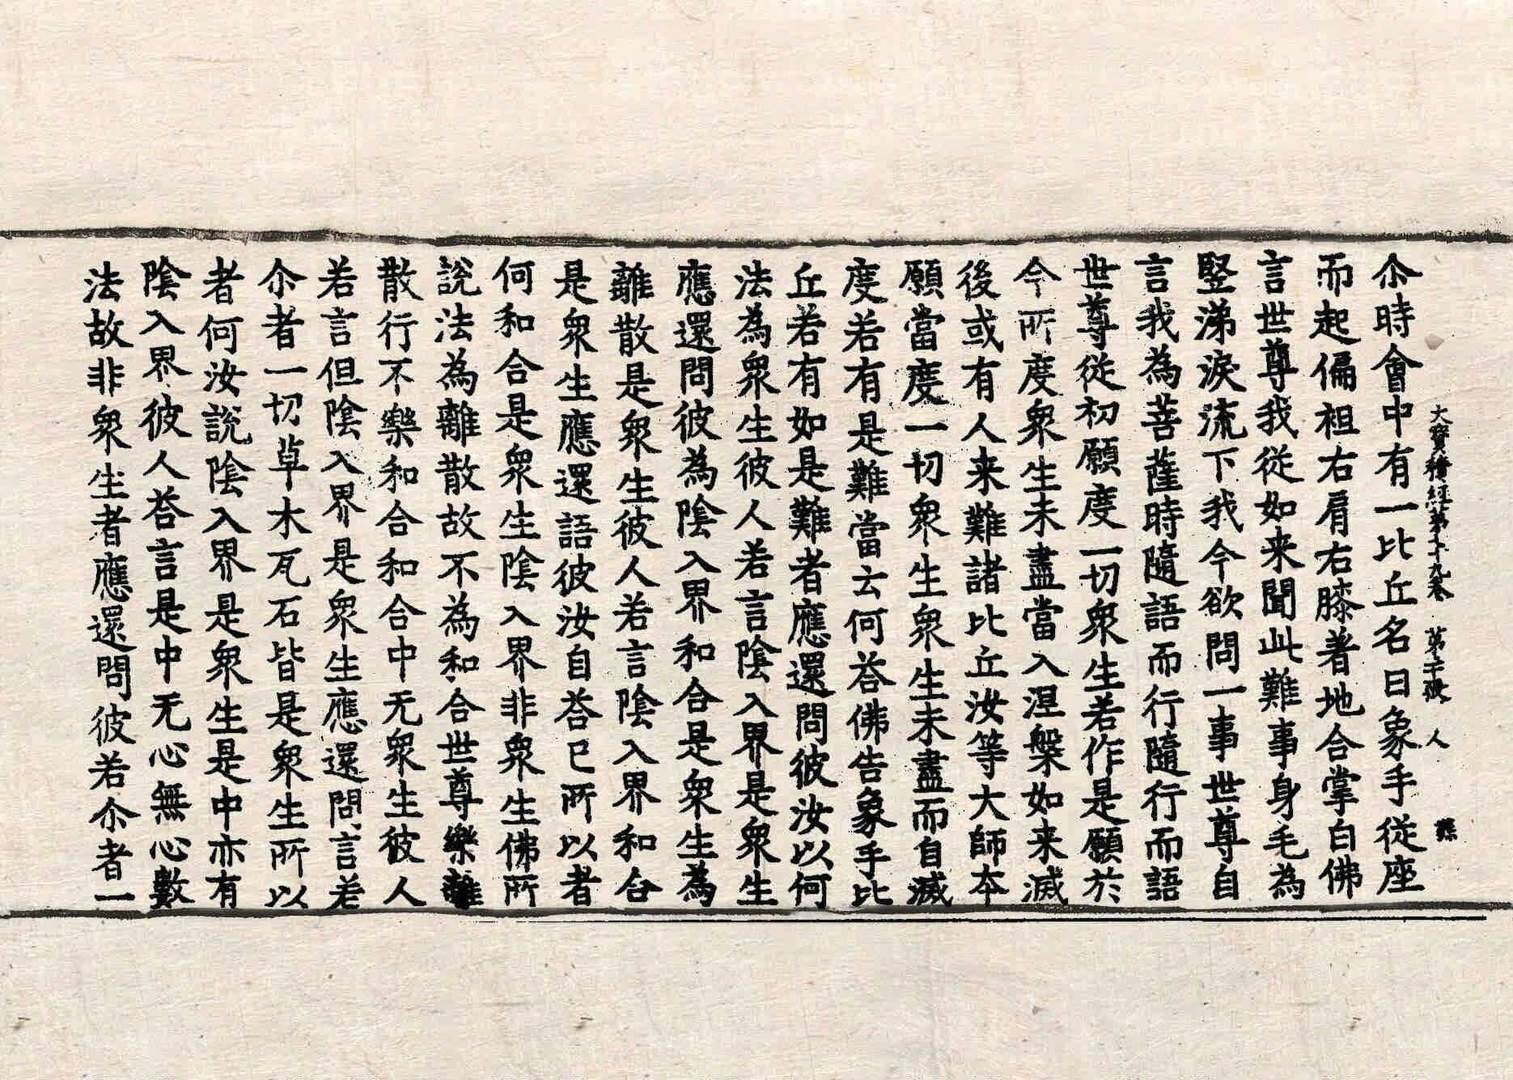 大寶積經第七十九卷 第二十張 人
尒時會中有一比丘名曰象手從座
而起偏袒右肩右膝著地合掌白佛
言世尊我從如来聞此難事身毛為
竪涕淚流下我今欲問一事世尊自
言我為菩薩時隨語而行隨行而語
世尊從初願度一切衆生若作是願於
今所度衆生未盡當入涅槃如来滅
後或有人来難諸比丘汝等大師夲
願當度一切衆生衆生未盡而自滅
度若有是難當云何荅佛告象手比
丘若有如是難者應還問彼汝以何
法為衆生彼人若言陰入界是衆生
應還問彼為陰入界和合是衆生為
離散是衆生彼人若言陰入界和合
是衆生應還語彼汝自荅已所以者
何和合是衆生陰入界非衆生佛所
說法為離散故不為和合世尊樂離
散行不樂和合和合中无衆生彼人
若言但陰入界是衆生應還問言若
尒者一切草木瓦石皆是衆生所以
者何汝說陰入界是衆生是中亦有
陰入界彼人荅言是中无心無心數
法故非衆生者應還問彼若尒者一